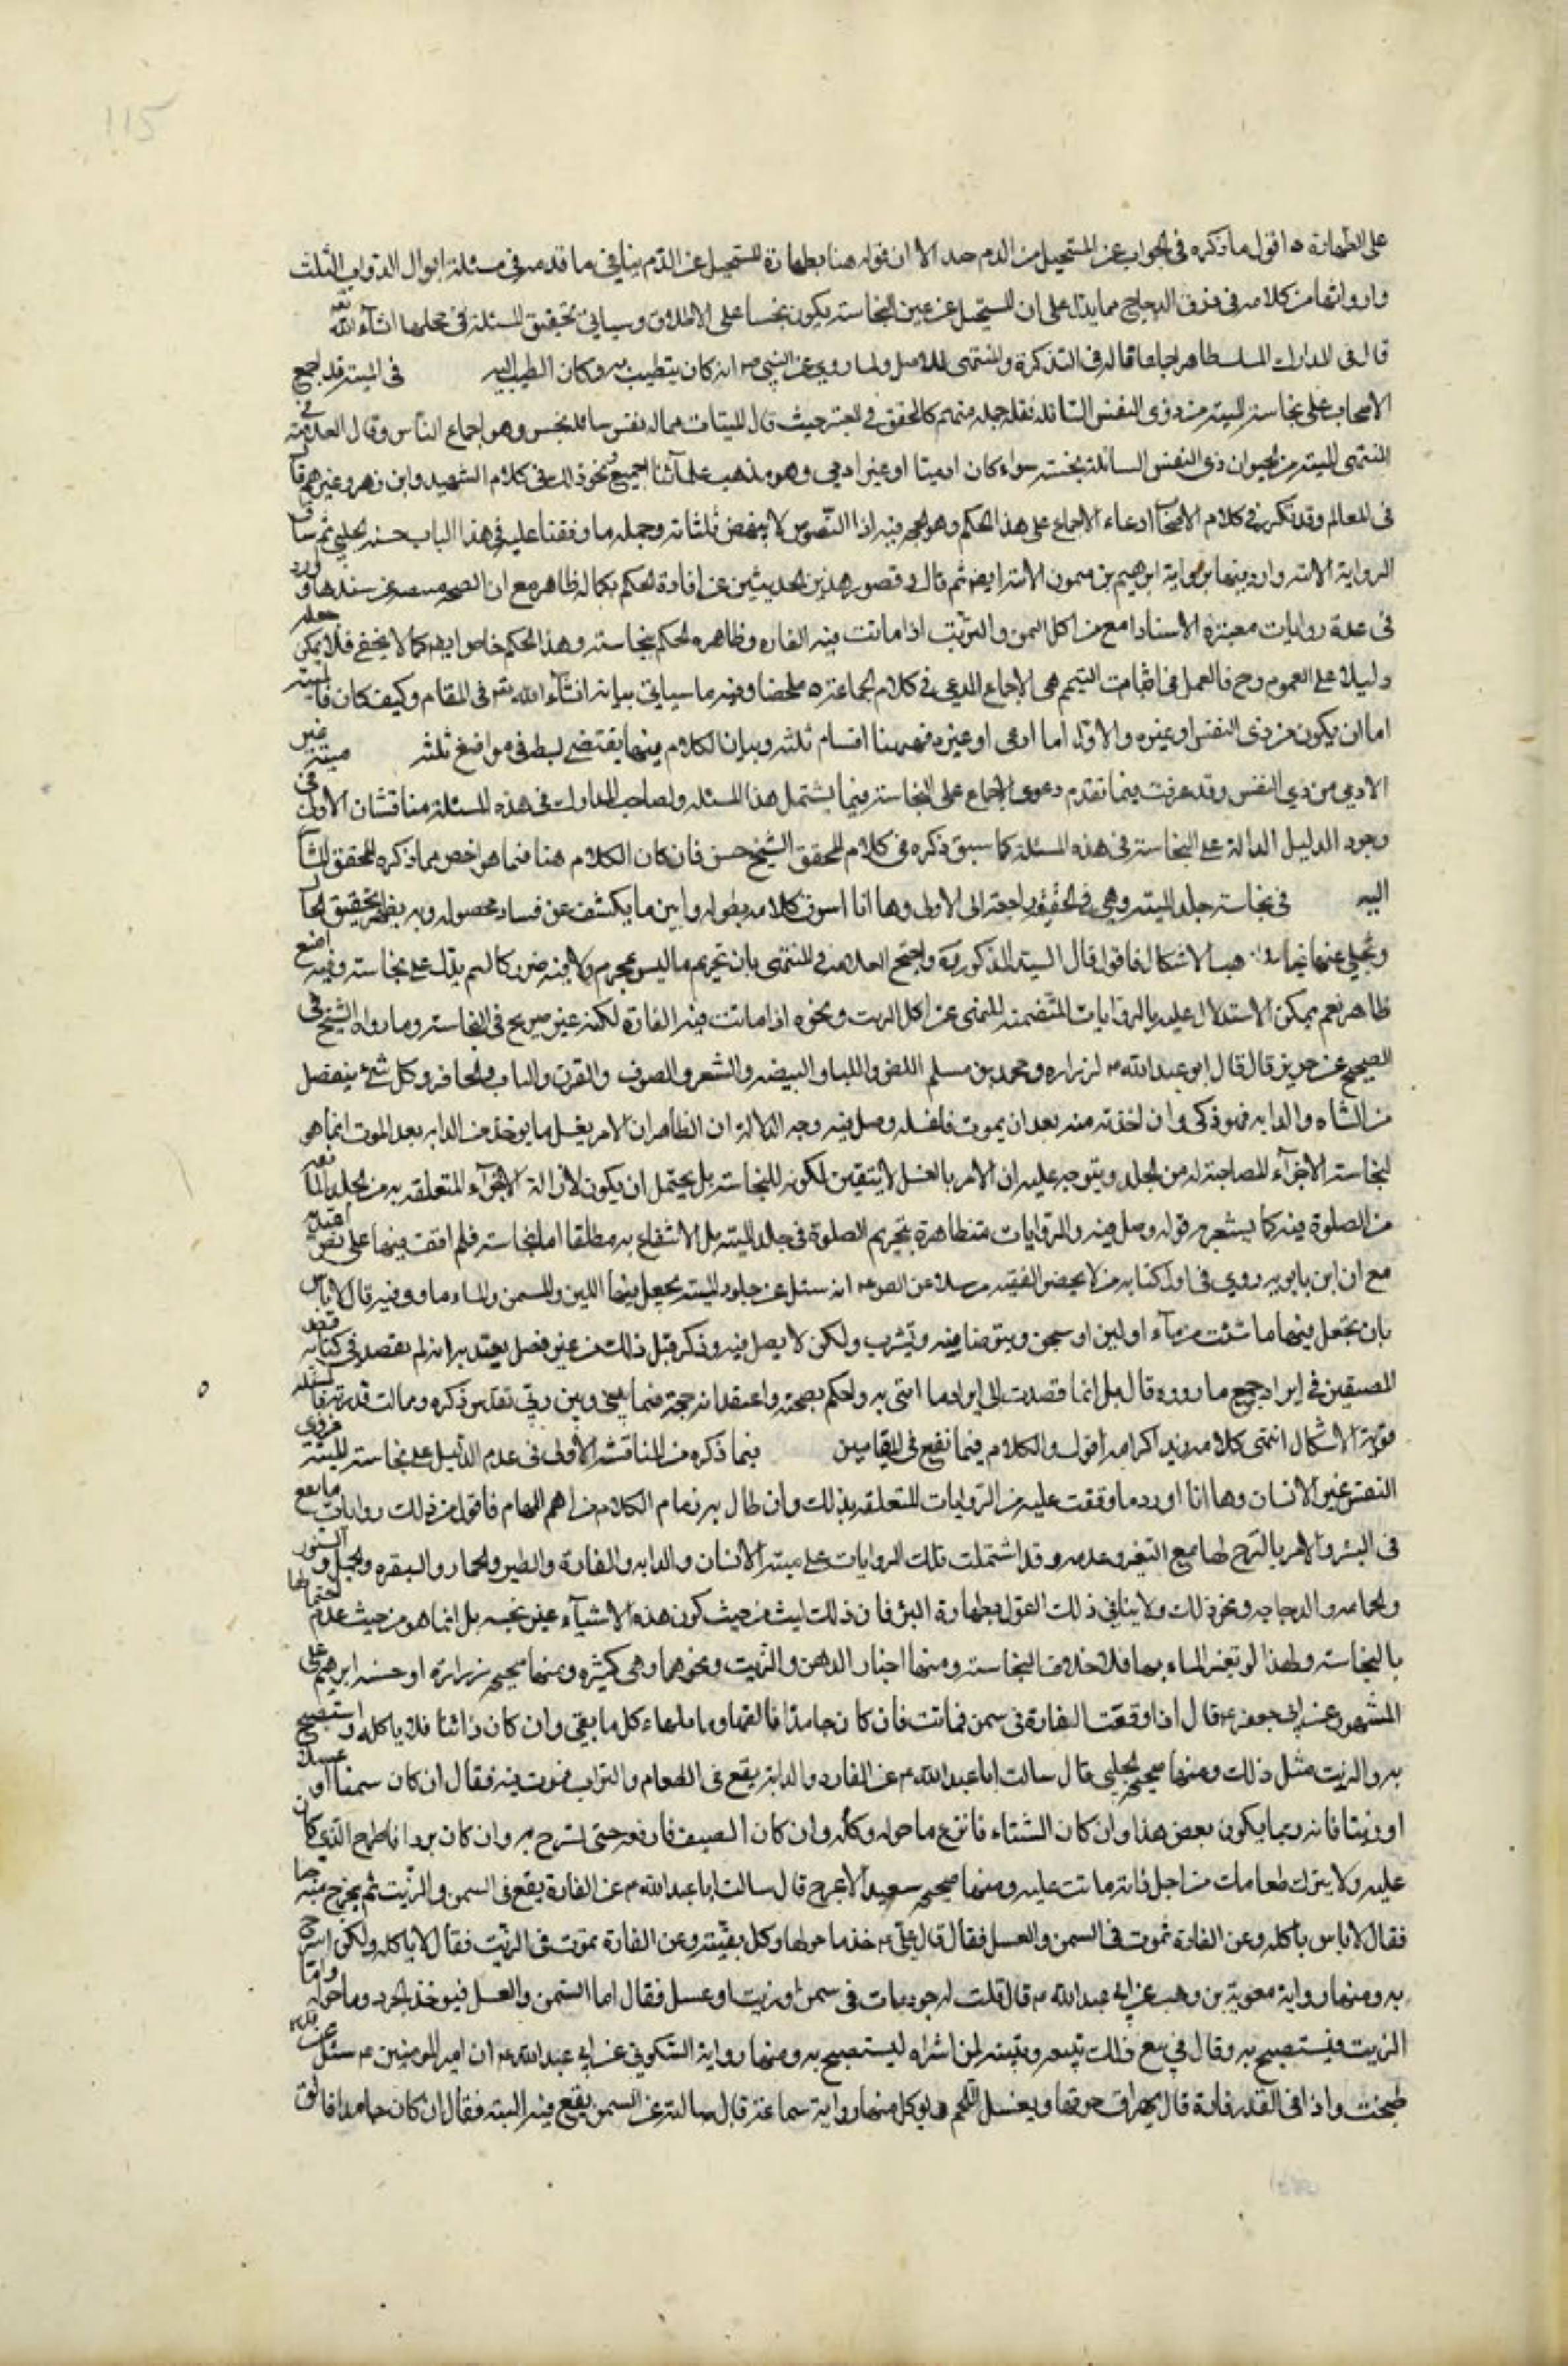 115
على الطهارة ه اقول ما ذكره فى الجواب عن المستحيل من الدم جيد الا ان قوله هنا بطهارة المستحيل عن الدم ينافى ما قدمه فى مسئلة ابوال الدواب الثلث
وارواثها من كلامه فى ذرق الدجاج مما يدل على ان المستحيل عن عين النجاسة يكون نجسا على الاطلاق وسياتى تحقيق المسئلة فى محلها انشاء الله تعه
قال فى المدارك المسك طاهر اجماعا قاله فى التذكرة والمنتهى للاصل ولما روى عن النبى ص انه كان يتطيب به وكان احب الطيب اليه فى الميتة قد اجمع
الاصحاب على نجاسة الميتة من ذى النفس السائلة نقله جملة منهم كالمحقق فى المعتبر حيث قال الميتات مما له نفس سائلة نجس وهو اجماع الناس وقال العلامة فى
المنتهى الميتة من الحيوان ذى النفس السائلة نجسة سواء كان ادميا او غير ادمى وهو مذهب علمائنا اجمع ونحو ذلك فى كلام الشهيد وابن زهره وغيرهم قال
فى المعالم وقد تكرر فى كلام الاصحاب ادعاء الاجماع على هذا الحكم وهو الحجه فيه اذ النصوص لا ينهض باثباته وجملة ما وقفنا عليه فى هذا الباب حسنة الحلبى ثم ساق
الرواية الاتيه واردفها برواية ابرهيم بن ميمون الاتيه ايضا ثم قال وقصور هذين الحديثين عن افادة الحكم بكماله ظاهر مع ان الصحه منتفيه عن سندهما وورد
فى عدة روايات معتبرة الاسناد المنع من اكل السمن والزيت اذا ماتت فيه الفاره وظاهره الحكم بنجاسته وهذا الحكم خاص ايضا كما لا يخفى فلا يمكن جعله
دليلا على العموم وح فالعمدة فى اثبات التعميم هى الاجماع المدعى فى كلام الجماعة ه ملخصا وفيه ما سياتى بيانه انشاء الله تعه فى المقام وكيف كان فالميتة
اما ان يكون من ذى النفس او غيره والاول اما ادمى او غيره فههنا اقسام ثلثه وبيان الكلام فيها يقتضى بسطه فى مواضع ثلثه ميتة غير
الادمى من ذى النفس وقد عرفت فيما تقدم دعوى الاجماع على النجاسة فيما يشتمل هذا المسئله ولصاحب المدارك فى هذه المسئلة مناقشتان الاولى فى
وجود الدليل الدالة على النجاسة فى هذه المسئلة كما سبق ذكره فى كلام المحقق الشيخ حسن فان كان الكلام هنا فيما هو اخص مما ذكره المحقق المشار
اليه فى نجاسة جلد الميته وهى فى الحقيقه راجعة الى الاولى وها انا اسوق كلامه بطوله وابين ما يكشف عن فساد محصوله وبه يظهر تحقيق الحال
وينجلى عنها غياهب الاشكال فاقول قال السيد المذكور ره واحتج العلامه فى المنتهى بان تحريم ما ليس بمحرم ولا فيه ضرر كالسم يدل على نجاسته وفيه منع
ظاهر نعم يمكن الاستدلال عليه بالروايات المتضمنه للنهى عن اكل الزيت ونحوه اذا ماتت فيه الفارة لكنه غير صريح فى النجاسة وما رواه الشيخ فى
الصحيح عن حريز قال قال ابو عبد الله ع لزراره ومحمد بن مسلم اللبن واللبا والبيضه والشعر والصوف والقرن والناب والحافر وكل شئ ينفصل
من الشاه والدابه فهو ذكى وان اخذته منه بعد ان يموت فاغسله وصل فيه وجه الدلالة ان الظاهر ان الامر بغسل ما يوخذ من الدابه بعد الموت انما هو
لنجاسة الاجزاء المصاحبة له من الجلد ويتوجه عليه ان الامر بالغسل لا يتعين لكونه للنجاسة بل يحتمل ان يكون لازالة الاجزاء المتعلقه به من الجلد المانعه
من الصلوة فيه كما يشعر به قوله وصل فيه والروايات متظاهرة بتحريم الصلوة فى جلد الميته بل الانتفاع به مطلقا اما نجاسته فلم اقف فيها على نص يعتد به
مع ان ابن بابويه روى فى اول كتابه من لا يحضره الفقيه مرسلا عن الص ع انه سئل عن جلود الميته يجعل فيها اللبن والسمن والماء ما ترى فيه قال لا باس
بان تجعل فيها ما شئت من ماء او لبن او سمن ويتوضا منه ويشرب ولكن لا يصلى فيه وذكر قبل ذلك من غير فصل يعتد به انه لم يقصد فى كتابه قصد
المصنفين فى ايراد جميع ما رووه قال بل انما قصدت الى ايراد ما افتى به واحكم بصحته واعتقد انه حجة فيما بينى وبين ربى تقدس ذكره وتعالت قدرته فالمسئله
قوية الاشكال انتهى كلامه زيد اكرامه اقول والكلام فيما يقع فى المقامين فيما ذكره من المناقشة الاولى فى عدم الدليل على نجاسة الميتة من ذى
النفس غير الانسان وها انا اورد ما وقفت عليه من الروايات المتعلقه بذلك وان طال به زمام الكلام فانه من اهم المهام فاقول من ذلك روايات ما يقع
فى البئر والامر بالنزح لها مع التغير وعدمه وقد اشتملت تلك الروايات على ميتة الانسان والدابه والفارة والطير والحمار والبقره والجمل والسنور
والحمامه والدجاجه ونحو ذلك ولا ينافى ذلك القول بطهارة البئر فان ذلك ليس من حيث كون هذه الاشياء غير نجسه بل انما هو من حيث عدم انفعالها
بالنجاسة ولهذا لو تغير الماء بها فلا خلاف النجاسة ومنها اخبار الدهن والزيت ونحوهما وهى كثيره ومنها صحيحه زرارة او حسنه ابرهيم على
المشهور عن ابى جعفر ع قال اذا وقعت الفارة فى سمن فماتت فان كان جامدا فالقها وما يليها وكل ما بقى وان كان ذائبا فلا ياكله واستصبح
به والزيت مثل ذلك ومنها صحيحه الحلبى قال سالت ابا عبد الله ع عن الفاره والدابه يقع فى الطعام والشراب فيموت فيه فقال ان كان سمنا او عسلا
او زيتا فانه ربما يكون بعض هذا وان كان الشتاء فانزع ما حوله وكله وان كان الصيف فارفعه حتى تسرج به وان كان بردا فاطرح الذى كان
عليه ولا تترك طعامك من اجل دابة ماتت عليه ومنها صحيحه سعيد الاعرج قال سالت ابا عبد الله ع عن الفارة يقع فى السمن والزيت ثم يخرج منه حيا
فقال لا باس باكله وعن الفارة تموت فى السمن والعسل فقال قال على ع خذ ما حولها وكل بقيته وعن الفارة تموت فى الزيت فقال لا ياكله ولكن اسرج
به ومنها رواية معوية بن وهب عن ابى عبد الله ع قال قلت له جرذ مات فى سمن او زيت او عسل فقال اما السمن والعسل فيوخذ الجرذ وما حوله واما
الزيت فيستصبح به وقال فى بيع ذلك تبيعه وتبينه لمن اشتراه ليستصبح به ومنها رواية السكونى عن ابى عبد الله ع ان امير المومنين ع سئل عن قدر
طبخت واذا فى القدر فارة قال يهراق مرقها ويغسل اللحم ويوكل ومنها رواية سماعة قال سالته عن السمن يقع فيه الميته فقال ان كان جامدا فالق